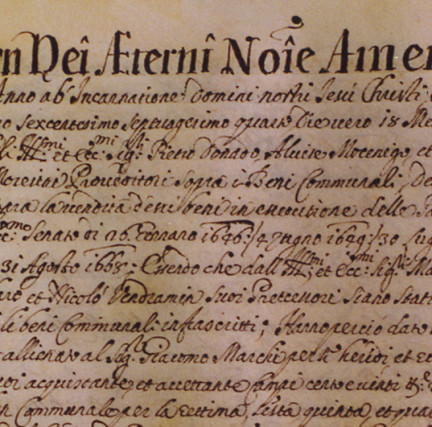 n Dei Æterni Noie Ame
Anno ab Incarnatione Domini nostri Jesu Christi
o sexcentesimo septuagesimo quarto Die vero 18 Me
Illmi et Ecc. Sigri Pietro Donado, Aluise Mocenigo et
Proveditori sopra i Beni Communali, De
la vendita d'essi beni in essecutione delle
Senato di 26 Genaro 1646: / 4 zugno 1649: / 30 lug
31 Agosto 1665; Essendo che dall' Illmi et Ecc: Sigri Ma
et Nicolò Vendramin suoi Precessori siano stati
li beni communali infrascritti; Hanno perciò dato
allienato al Sigr Giacomo Marchi per se heredi et
acquistante et accettante campi cento e vinti
Communale per la settima, sesta quinta et qua